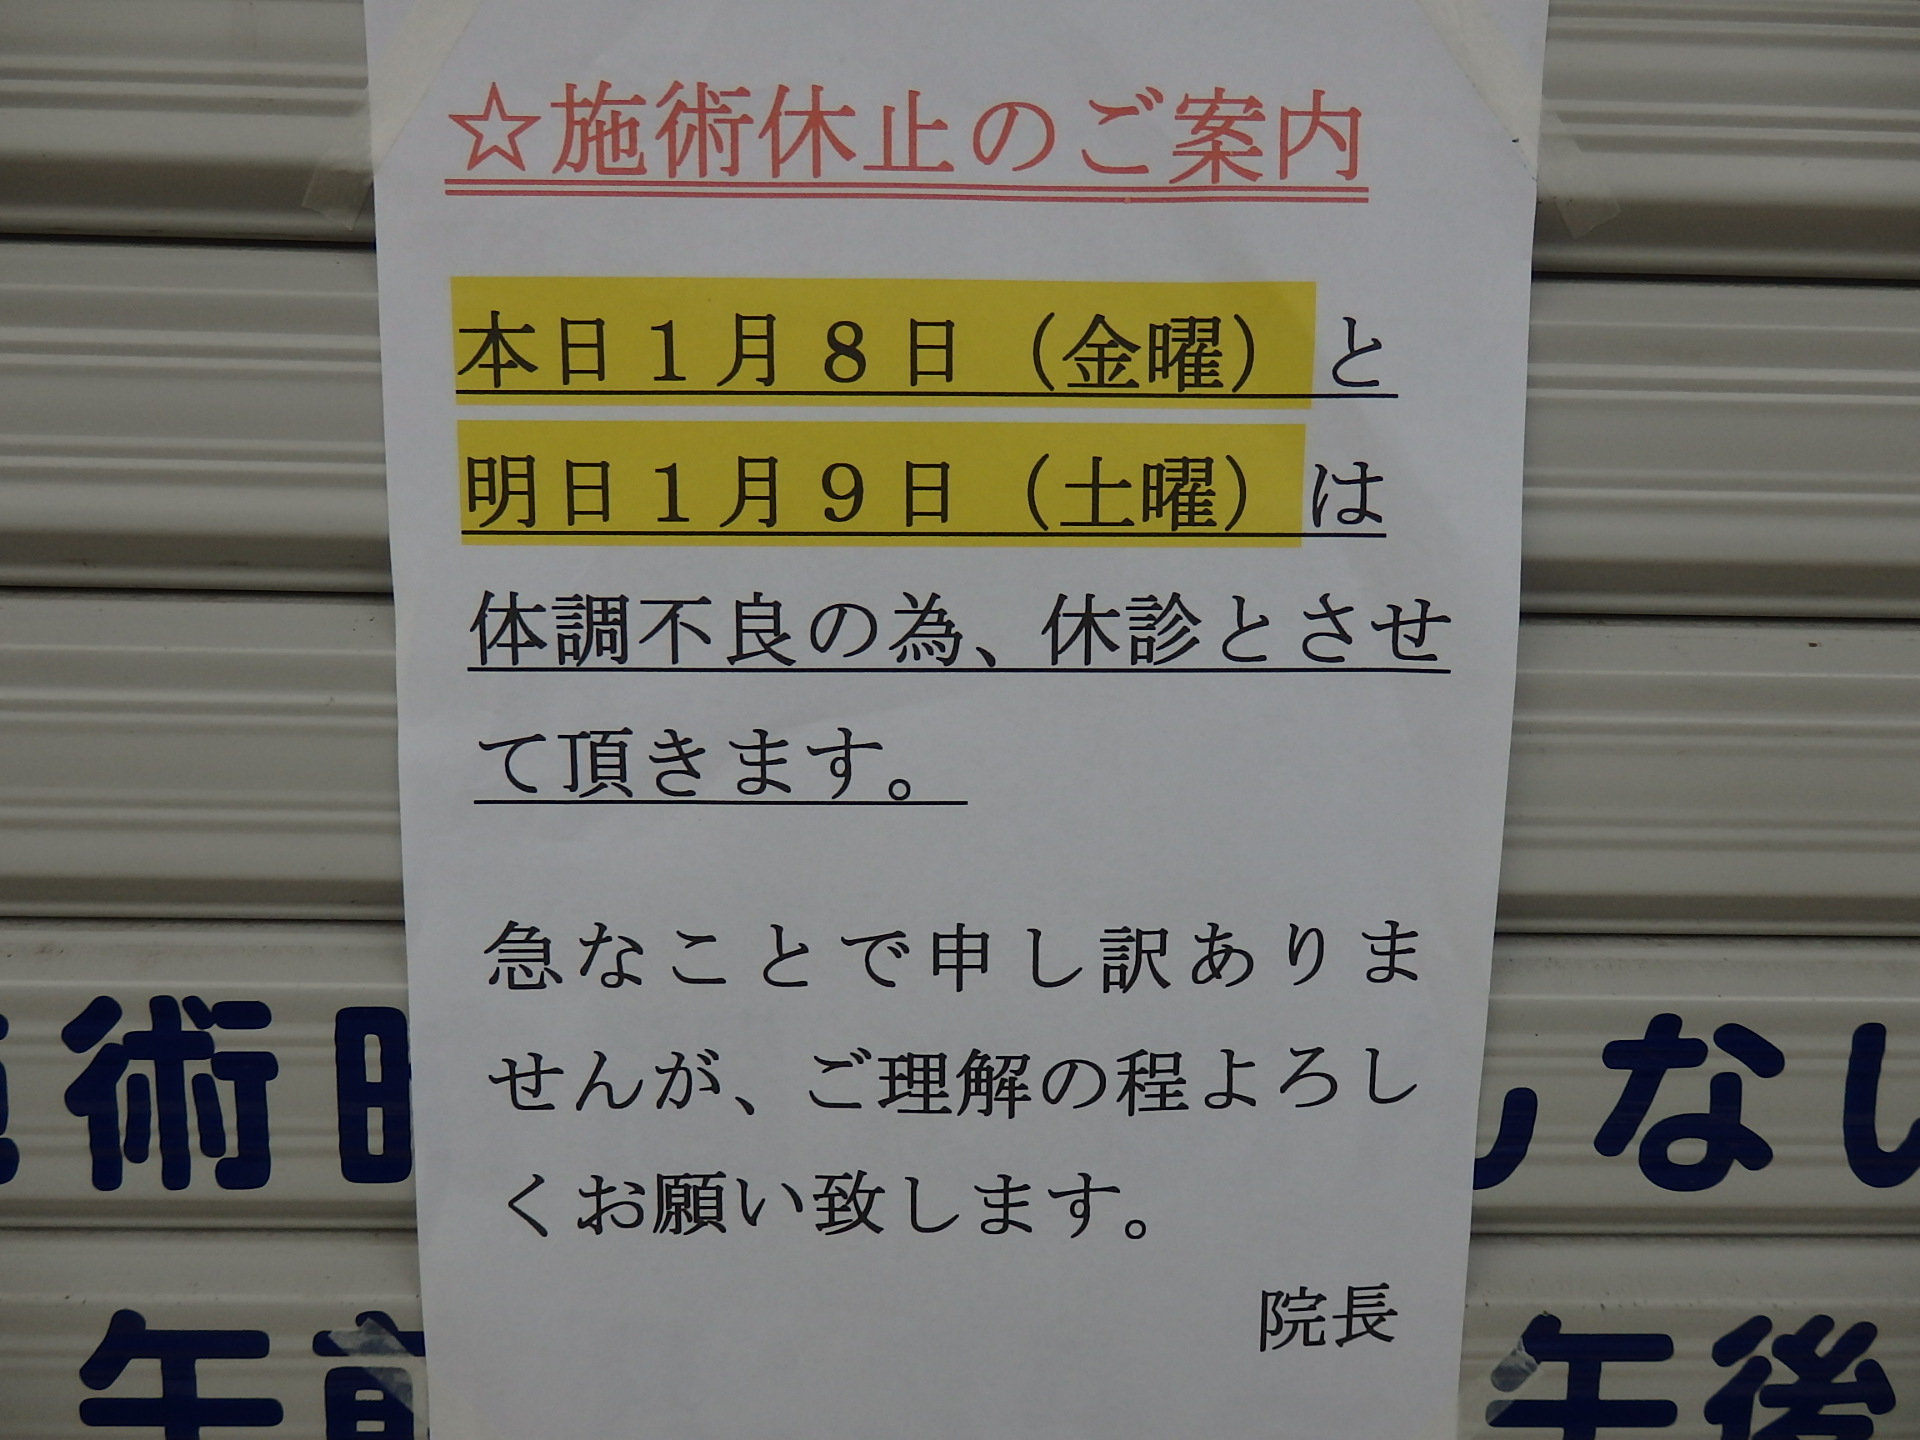 ☆施術休止のご案内
本日１月８日（金曜）と
明日１月９日（土曜）は
体調不良の為、休診とさせ
て頂きます。
急なことで申し訳ありま
せんが、ご理解の程よろし
くお願い致します。
院長
術
ない
午前
午後